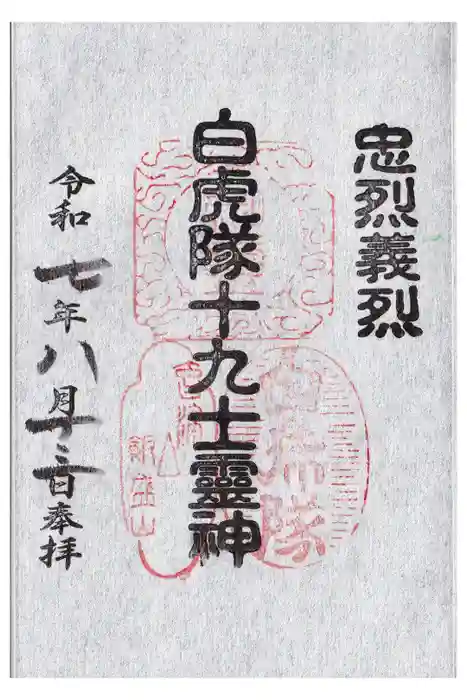 忠烈義烈
白虎隊十九士靈神
令和七年八月十二日奉拝
白虎隊
飯盛山